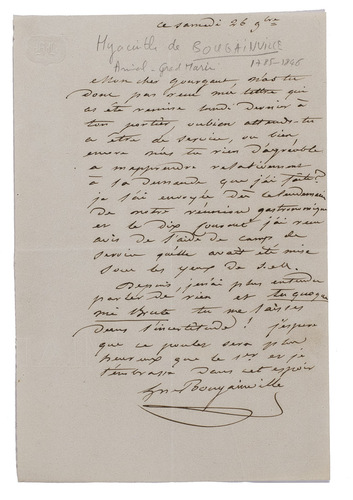 ce samedi 26 9bre
Hyacinthe de BOUGAINVILLE
Amiral - Grad Marin 1785-1846
Mon cher Gourgaud, n'as tu
donc pas reçu ma lettre qui
a été remise lundi dernier à
ton portier, ou bien attends-tu
à être de service, ou bien
encore n'as tu rien d'agréable
à m'apprendre relativement
à la demande que j'ai faite?
je l'ai envoyée dès le lendemain
de notre réunion gastronomique
et le dix courant j'ai reçu
avis de l'aide de camp de
service qu'elle avait été mise
sous les yeux de S.M.
Depuis, je n'ai plus entendu
parler de rien et tu quoque
mi Brute tu me laisses
dans l'incertitude! j'espère
que ce poulet sera plus
heureux que le 1er et je
t'embrasse dans cet espoir
Bougainville